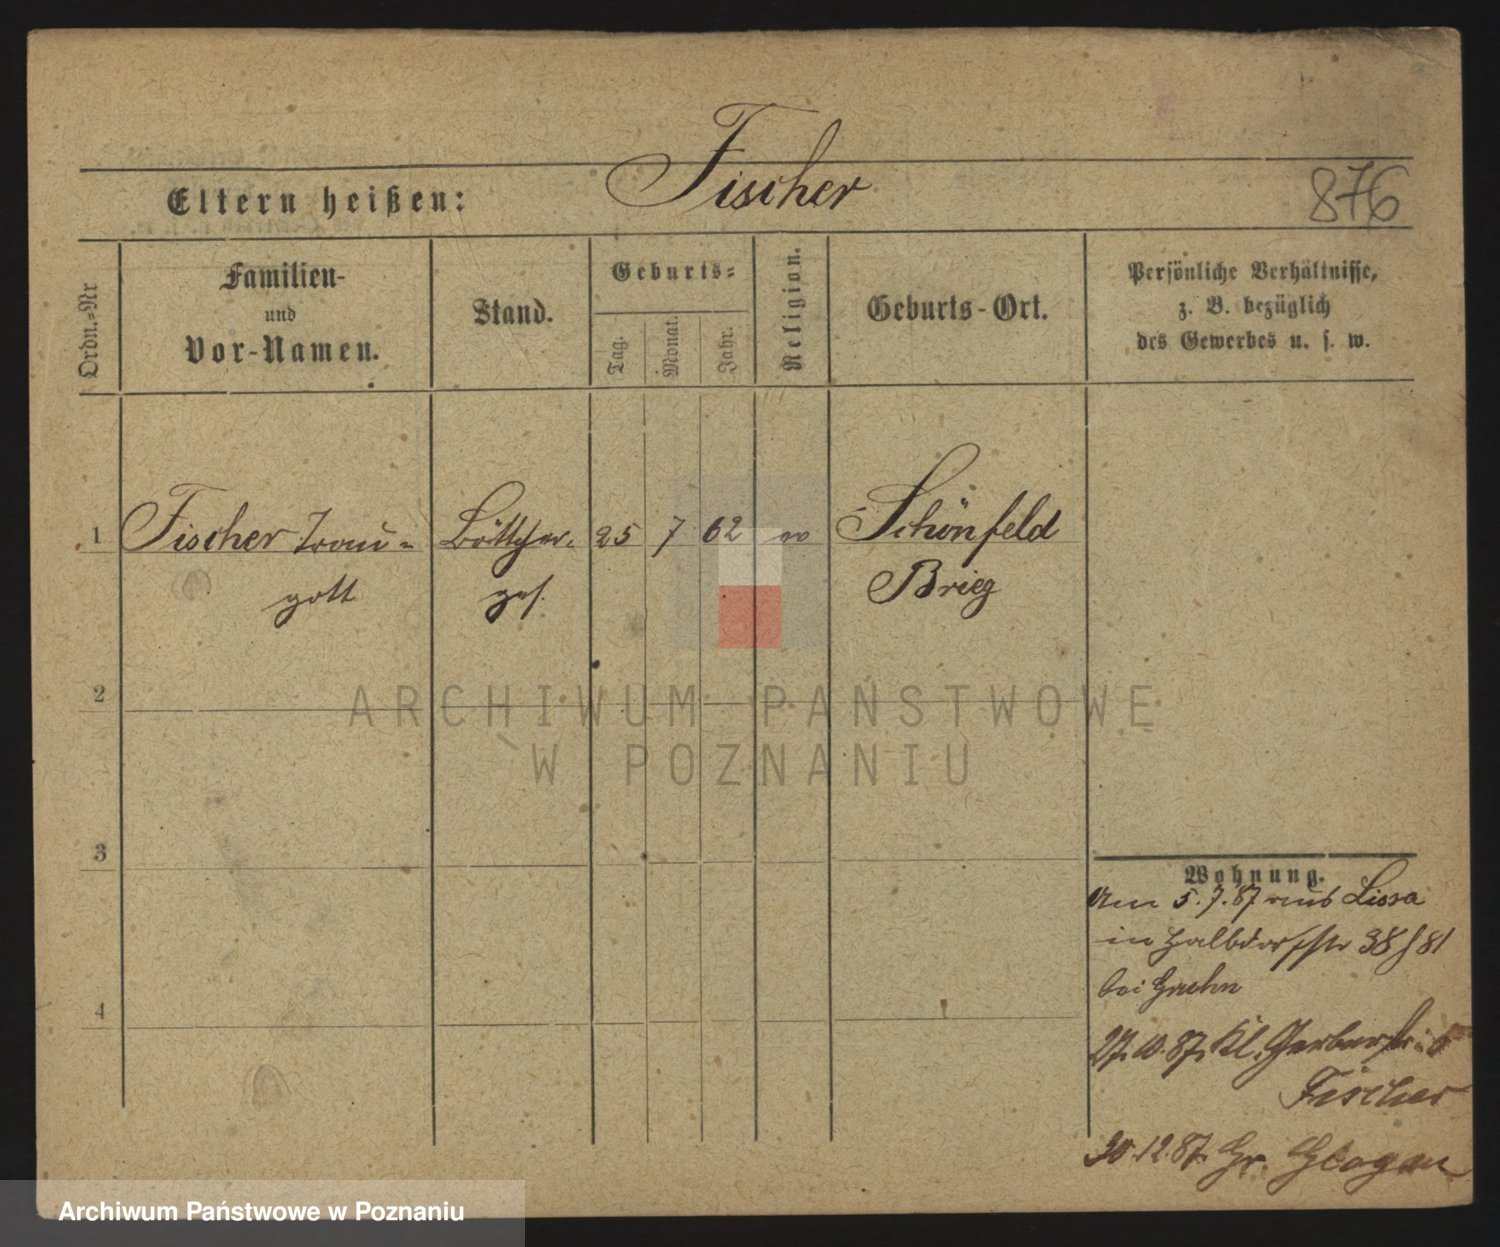 Fischer
Eltern heißen:
876
Ordn.-Nr
Familien-
und
Vor-Namen.
Stand.
Geburts-
Tag.
Monat.
Jahr.
Religion.
Geburts-Ort.
Persönliche Verhältnisse,
z. B. bezüglich
des Gewerbes u. s. w.
1
Fischer Trau-
gott
Böttcher-
ges.
25
7
62
ev
Schönfeld
Brieg
2
3
4
Wohnung.
Am 5.7.87 aus Lissa
in Halbdorfstr 38 81
bei
27.10.87. Kl. Gerberstr. 6
Fischer
30.12.87. Gr. Glogau
ARCHIWUM PAŃSTWOWE
W POZNANIU
Archiwum Państwowe w Poznaniu